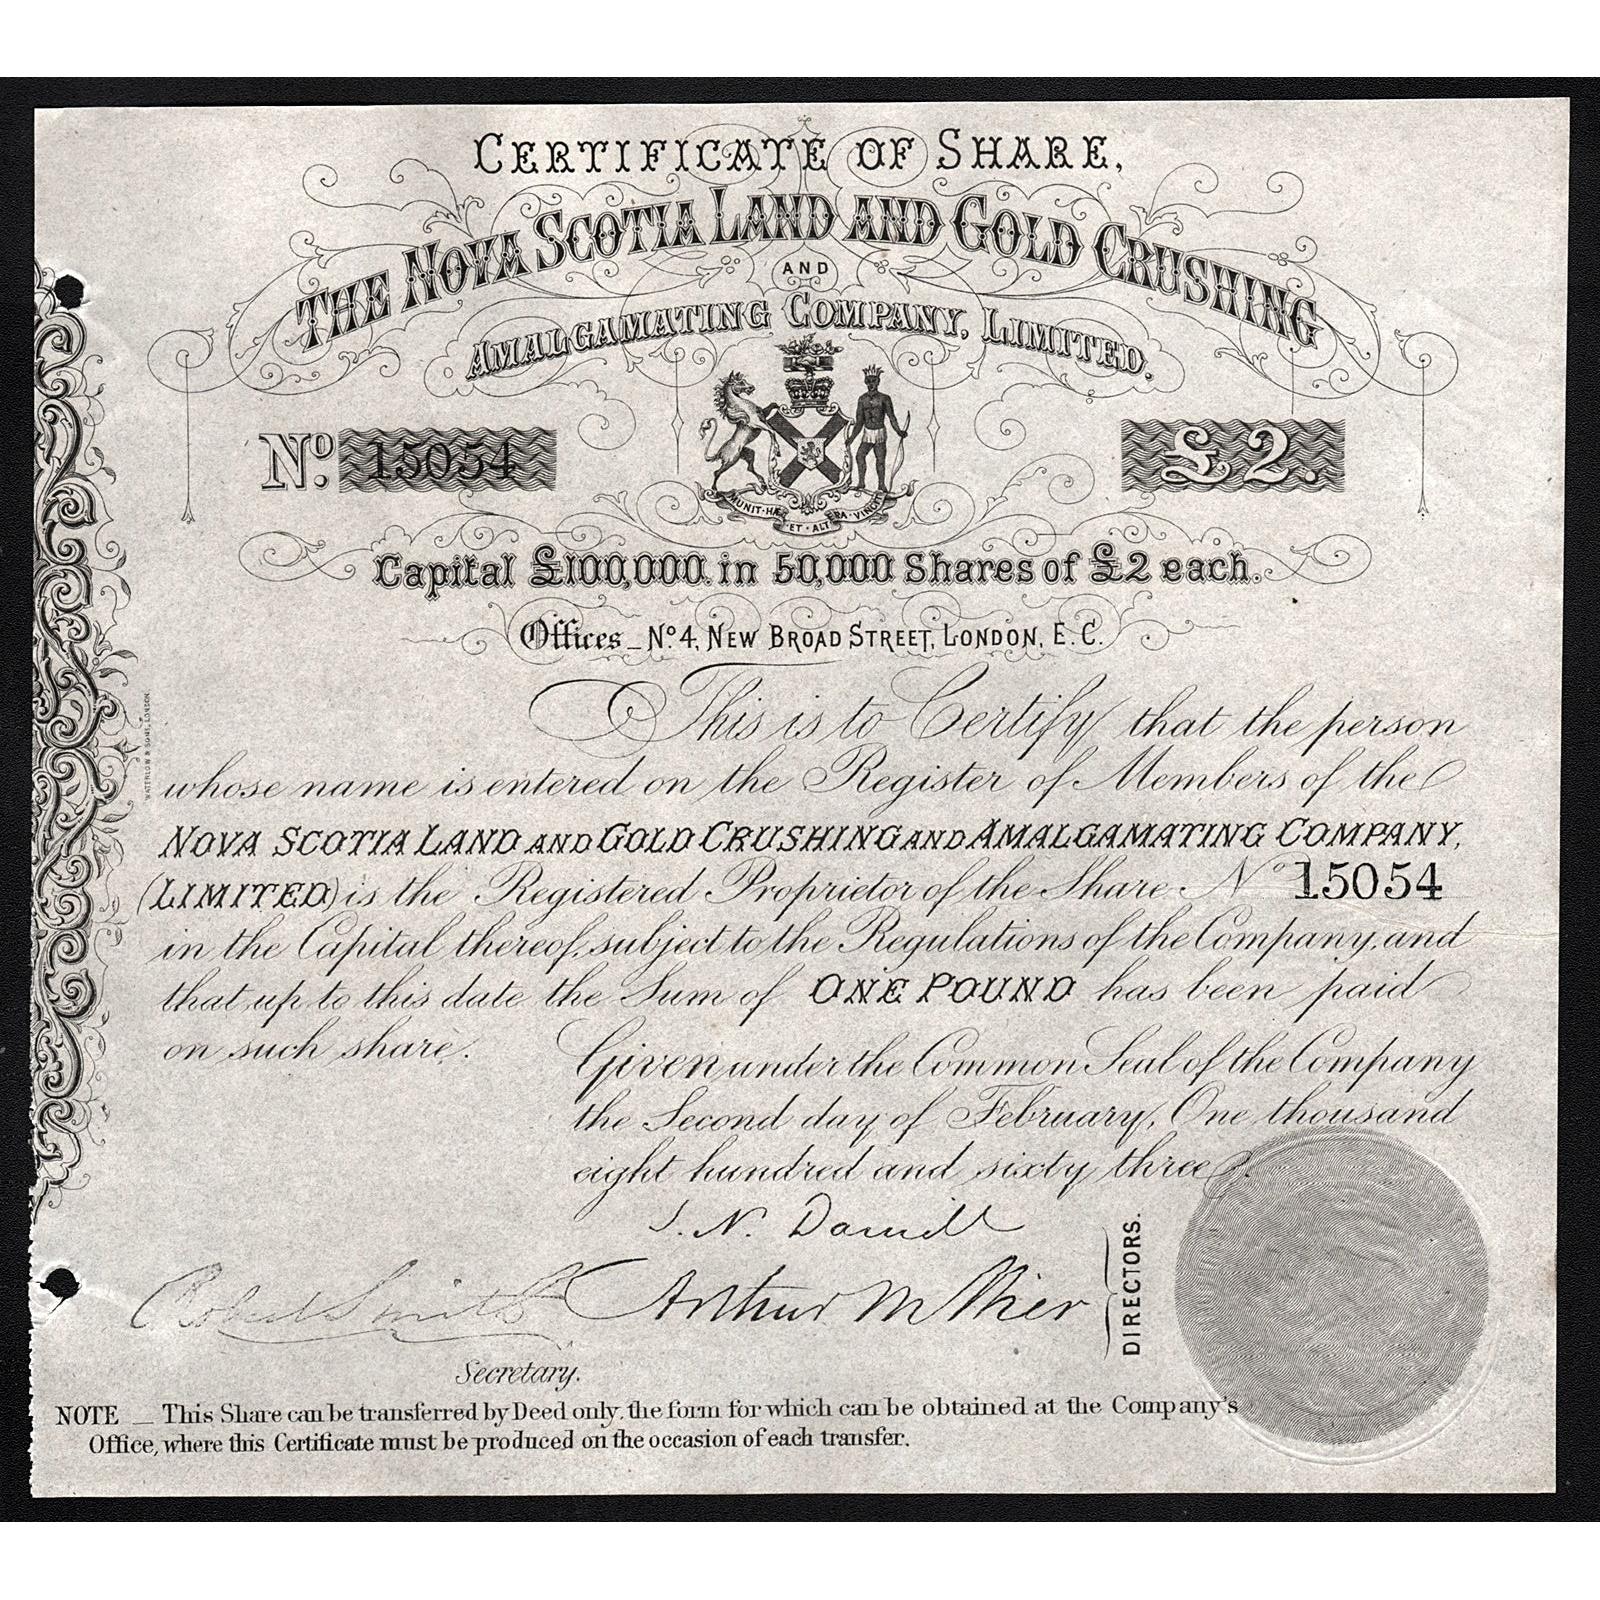 CERTIFICATE OF SHARE,
THE NOVA SCOTIA LAND AND GOLD CRUSHING
AND
AMALGAMATING COMPANY, LIMITED.
No. 15054
£2.
MUNIT·HÆC ET·ALTERA·VINCIT
Capital £100,000. in 50,000 Shares of £2 each.
Offices _ No. 4, NEW BROAD STREET, LONDON, E.C.
WATERLOW & SONS, LONDON
This is to Certify that the person
whose name is entered on the Register of Members of the
NOVA SCOTIA LAND AND GOLD CRUSHING AND AMALGAMATING COMPANY,
(LIMITED) is the Registered Proprietor of the Share No 15054
in the Capital thereof, subject to the Regulations of the Company, and
that up to this date the Sum of ONE POUND has been paid
on such share.
Given under the Common Seal of the Company
the Second day of February, One thousand
eight hundred and sixty three.
Robert Smith
Arthur M
DIRECTORS.
Secretary.
NOTE _ This Share can be transferred by Deed only, the form for which can be obtained at the Company's
Office, where this Certificate must be produced on the occasion of each transfer.